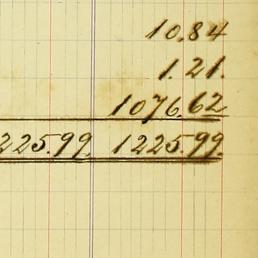 10.84
1.21
1076.62
225.99 1225.99